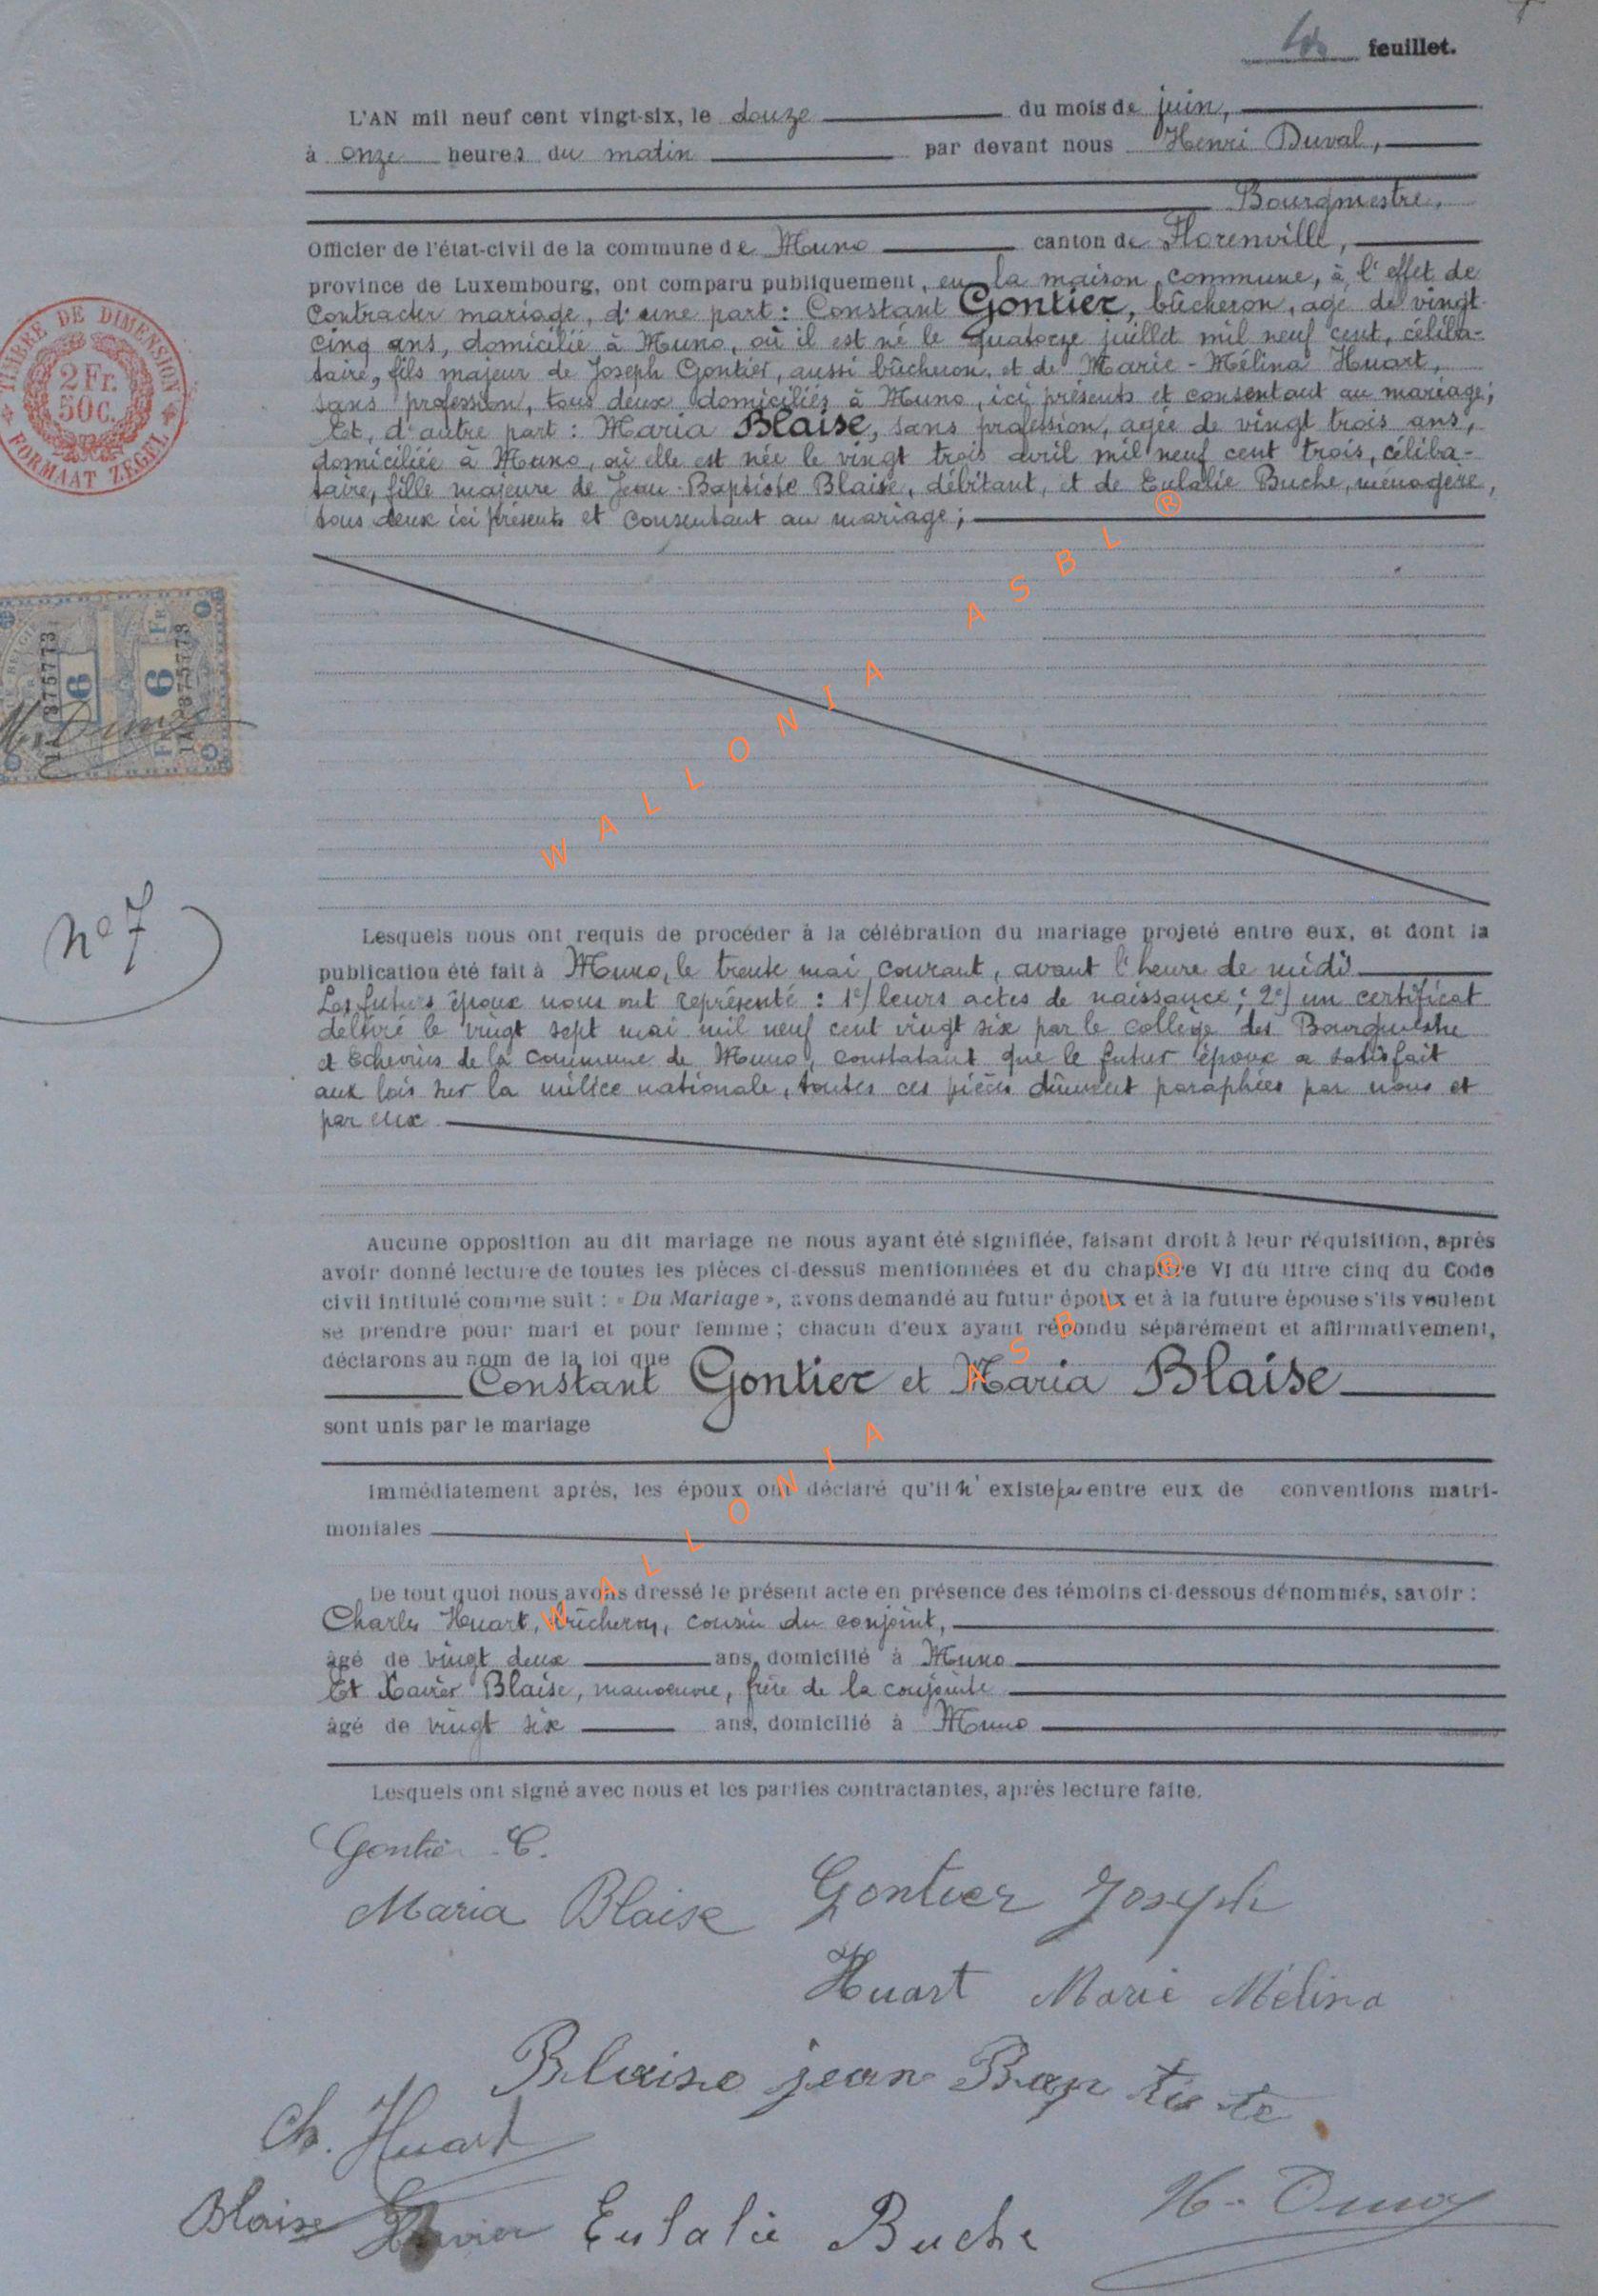 4e feuillet.
L'AN mil neuf cent vingt-six, le douze du mois de juin,
à onze heures du matin par devant nous Henri Duval,
Bourgmestre,
Officier de l'état-civil de la commune de Muno canton de Florenville,
province de Luxembourg, ont comparu publiquement, en la maison commune, à l'effet de
Contracter mariage, d'une part : Constant Gontier, bûcheron, agé de vingt
cinq ans, domicilié à Muno, où il est né le quatorze juillet mil neuf cent, céliba-
taire, fils majeur de Joseph Gontier, aussi bûcheron, et de Marie-Mélina Huart,
sans profession, tous deux domiciliés à Muno, ici présents et consentant au mariage;
Et, d'autre part : Maria Blaise, sans profession, agée de vingt trois ans,
domiciliée à Muno, où elle est née le vingt trois avril mil neuf cent trois, céliba-
taire, fille majeure de Jean-Baptiste Blaise, débitant, et de Eulalie Buche, ménagère,
tous deux ici présents et consentant au mariage;
TIMBRE DE DIMENSION
2 Fr.
50c.
FORMAAT ZEGEL
6 Fr 6
875773
WALLONIA ASBL ®
nº 7
Lesquels nous ont requis de procéder à la célébration du mariage projeté entre eux, et dont la
publication été fait à Muno, le trente mai courant, avant l'heure de midi
Les futurs époux nous ont représenté : 1º/ leurs actes de naissance; 2º/ un certificat
délivré le vingt sept mai mil neuf cent vingt six par le collège des Bourgmestre
et Echevins de la commune de Muno, constatant que le futur époux a satisfait
aux lois sur la milice nationale, toutes ces pièces dûment paraphées par nous et
par eux
Aucune opposition au dit mariage ne nous ayant été signifiée, faisant droit à leur réquisition, après
avoir donné lecture de toutes les pièces ci-dessus mentionnées et du chapitre VI du titre cinq du Code
civil intitulé comme suit : « Du Mariage », avons demandé au futur époux et à la future épouse s'ils veulent
se prendre pour mari et pour femme ; chacun d'eux ayant répondu séparément et affirmativement,
déclarons au nom de la loi que
Constant Gontier et Maria Blaise
sont unis par le mariage
WALLONIA ASBL ®
Immédiatement après, les époux ont déclaré qu'il n'existe pas entre eux de conventions matri-
moniales
De tout quoi nous avons dressé le présent acte en présence des témoins ci-dessous dénommés, savoir :
Charles Huart, bûcheron, cousin du conjoint,
âgé de vingt deux ans, domicilié à Muno
Et Xavier Blaise, manoeuvre, frère de la conjointe
âgé de vingt six ans, domicilié à Muno
Lesquels ont signé avec nous et les parties contractantes, après lecture faite.
Gontier C.
Maria Blaise Gontier Joseph
Huart Marie Mélina
Blaise jean Baptiste
Ch. Huart
Blaise Xavier Eulalie Buche H. Duval